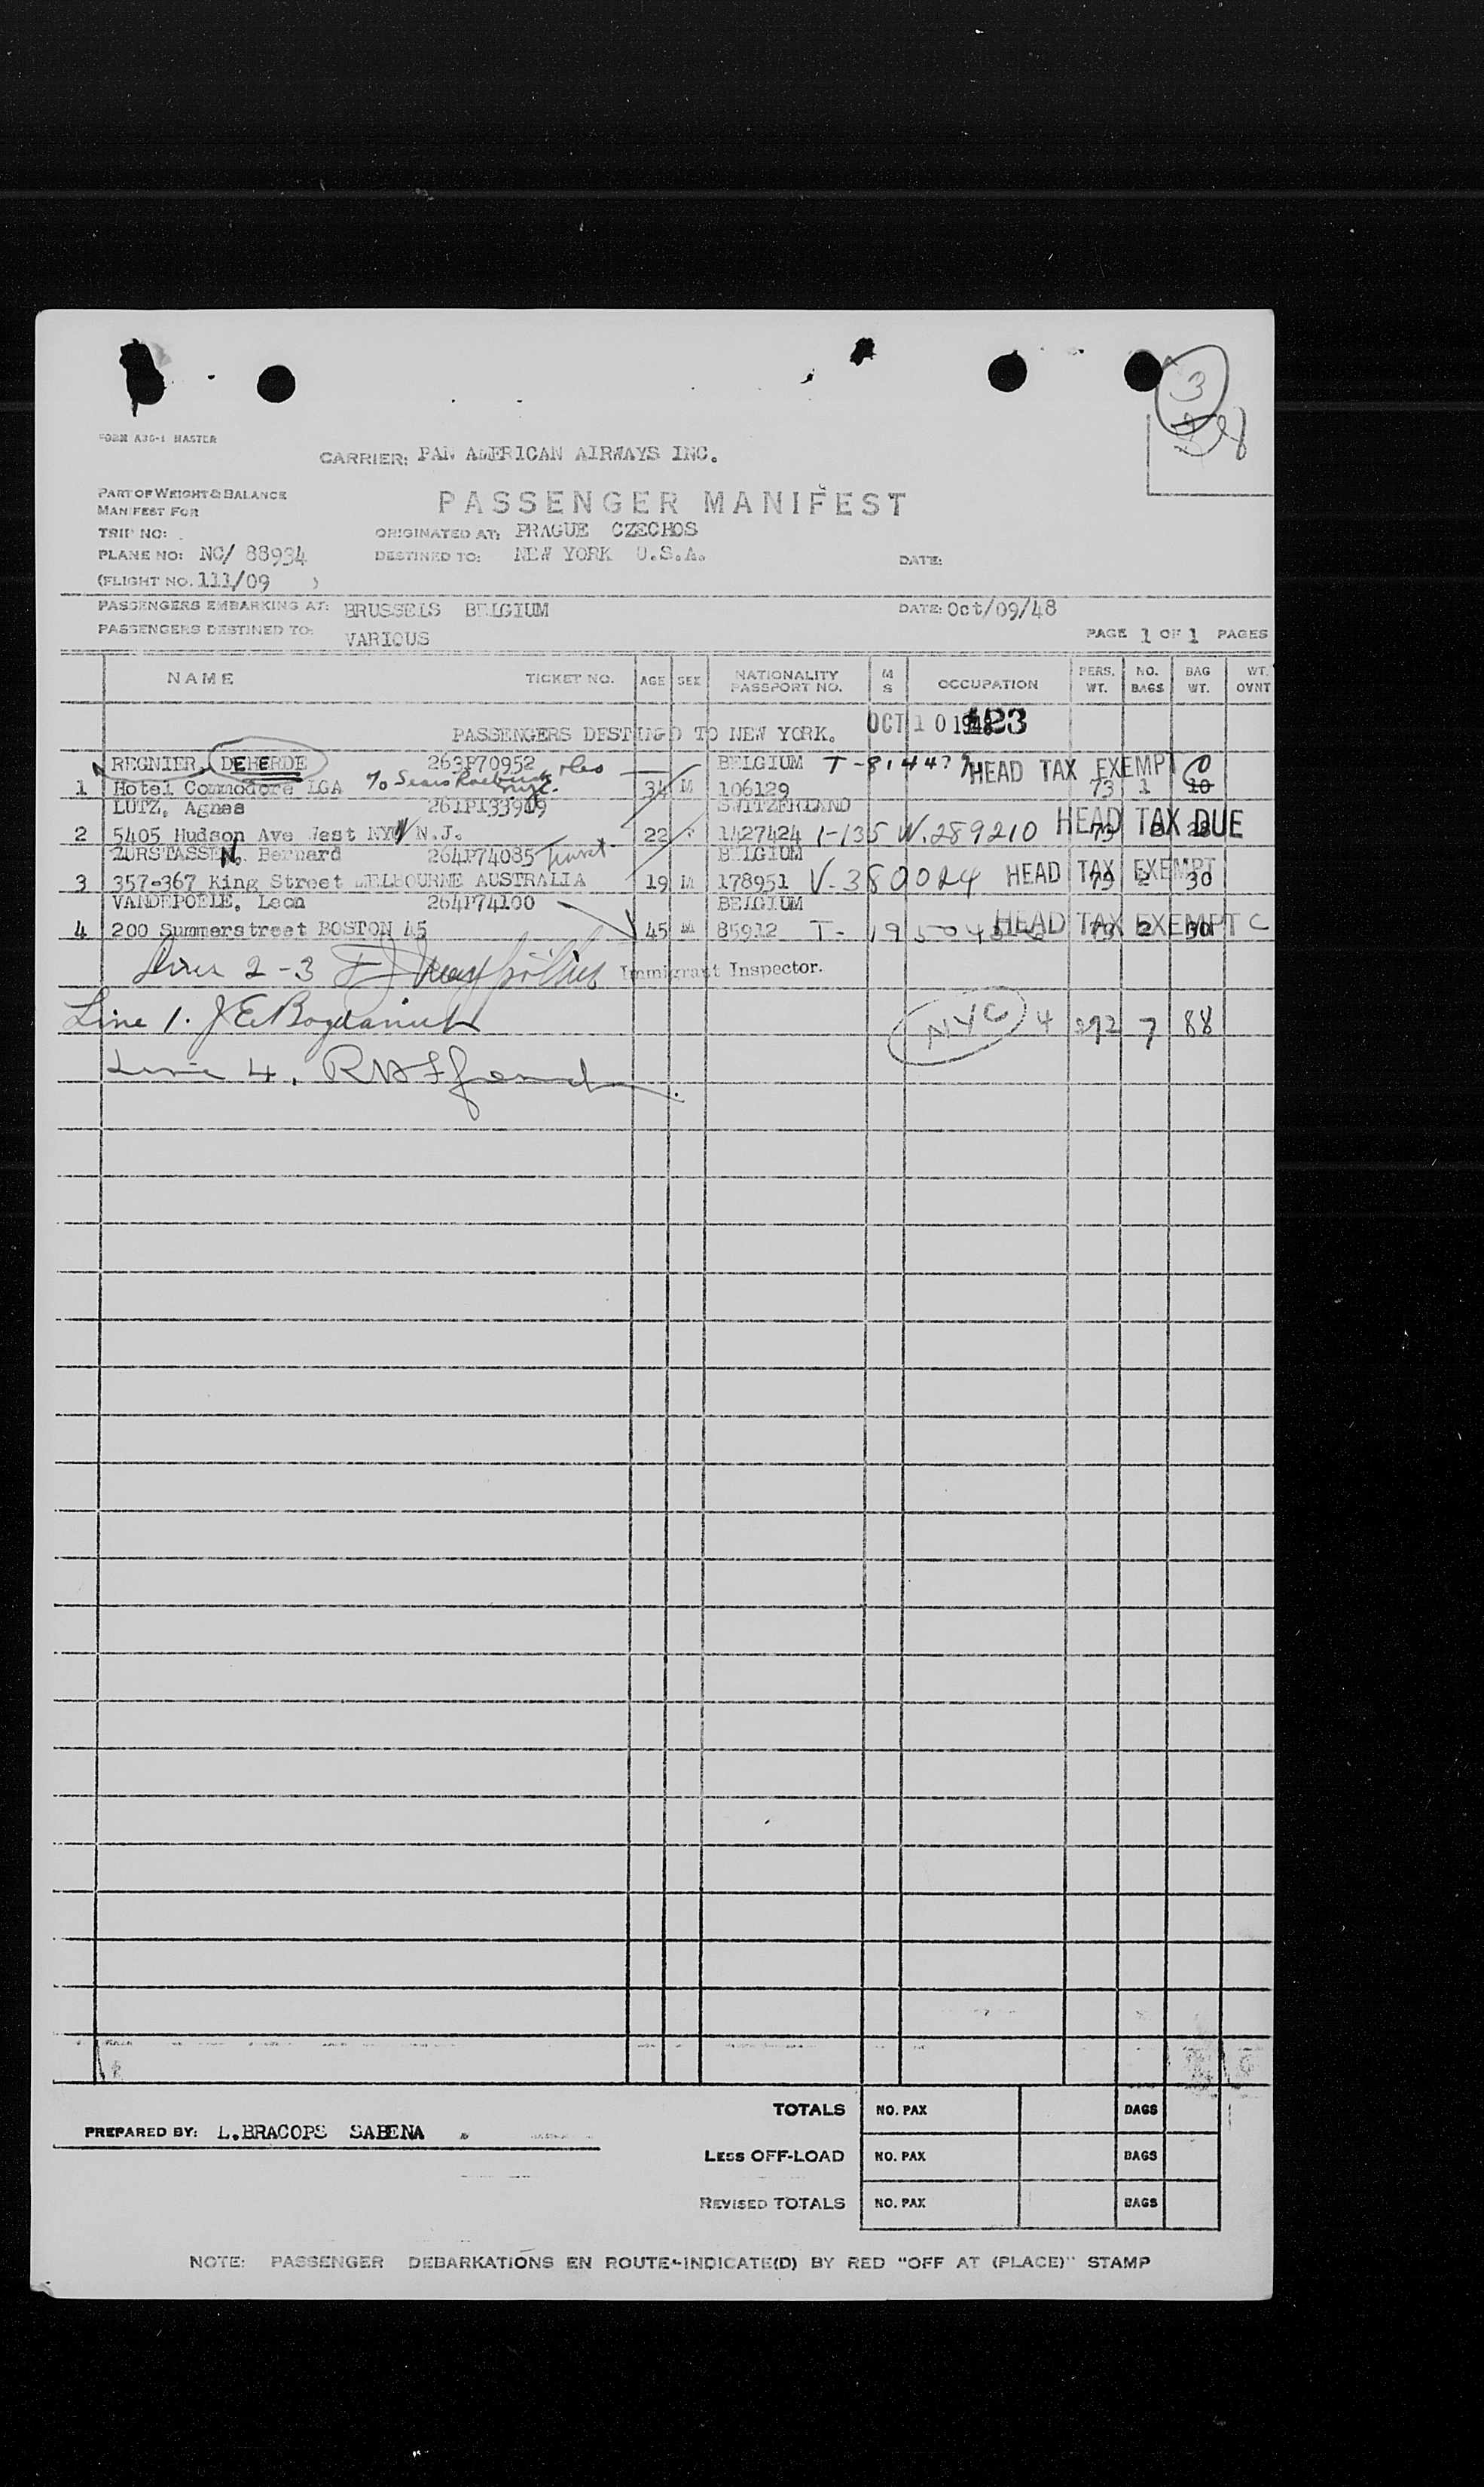 3
FORM A36-1 MASTER
CARRIER: PAN AMERICAN AIRWAYS INC.
PART OF WEIGHT & BALANCE
MANIFEST FOR
PASSENGER MANIFEST
TRIP NO:
ORIGINATED AT: PRAGUE CZECHOS
PLANE NO: NC/ 88934
DESTINED TO: NEW YORK U.S.A.
DATE:
(FLIGHT NO. 111/09 )
PASSENGERS EMBARKING AT: BRUSSELS BELGIUM
DATE: Oct/09/48
PASSENGERS DESTINED TO: VARIOUS
PAGE 1 OF 1 PAGES
NAME TICKET NO. AGE SEX NATIONALITY PASSPORT NO. M S OCCUPATION PERS. WT. NO. BAGS BAG WT. WT. OVNT
OCT 10 1948 423
PASSENGERS DESTINED TO NEW YORK.
REGNIER, DEHERDE 263P70952 BELGIUM T-814479 HEAD TAX EXEMPT 0
1 Hotel Commodore LGA % Sears Roebuck NYC. 34 M 106129 73 1 10
LUTZ, Agnes 261P133919 SWITZERLAND
2 5405 Hudson Ave West NY N.J. 22 F 1427424 1-135 W.289210 HEAD TAX DUE 73
ZURSTASSEN, Bernard 264P74085 BELGIUM
3 357-367 King Street MELBOURNE AUSTRALIA 19 M 178951 V-380024 HEAD TAX EXEMPT 73 2 30
VANDEPOELE, Leon 264P74100 BELGIUM
4 200 Summerstreet BOSTON 45 M 85912 T- HEAD TAX EXEMPT C 73 2 30
Lines 2-3 Immigrant Inspector.
Line 1. J E Bogdaniuk
NYC 4 292 7 88
Line 4.
TOTALS NO. PAX BAGS
PREPARED BY: L.BRACOPS SABENA
LESS OFF-LOAD NO. PAX BAGS
REVISED TOTALS NO. PAX BAGS
NOTE: PASSENGER DEBARKATIONS EN ROUTE-INDICATE(D) BY RED "OFF AT (PLACE)" STAMP